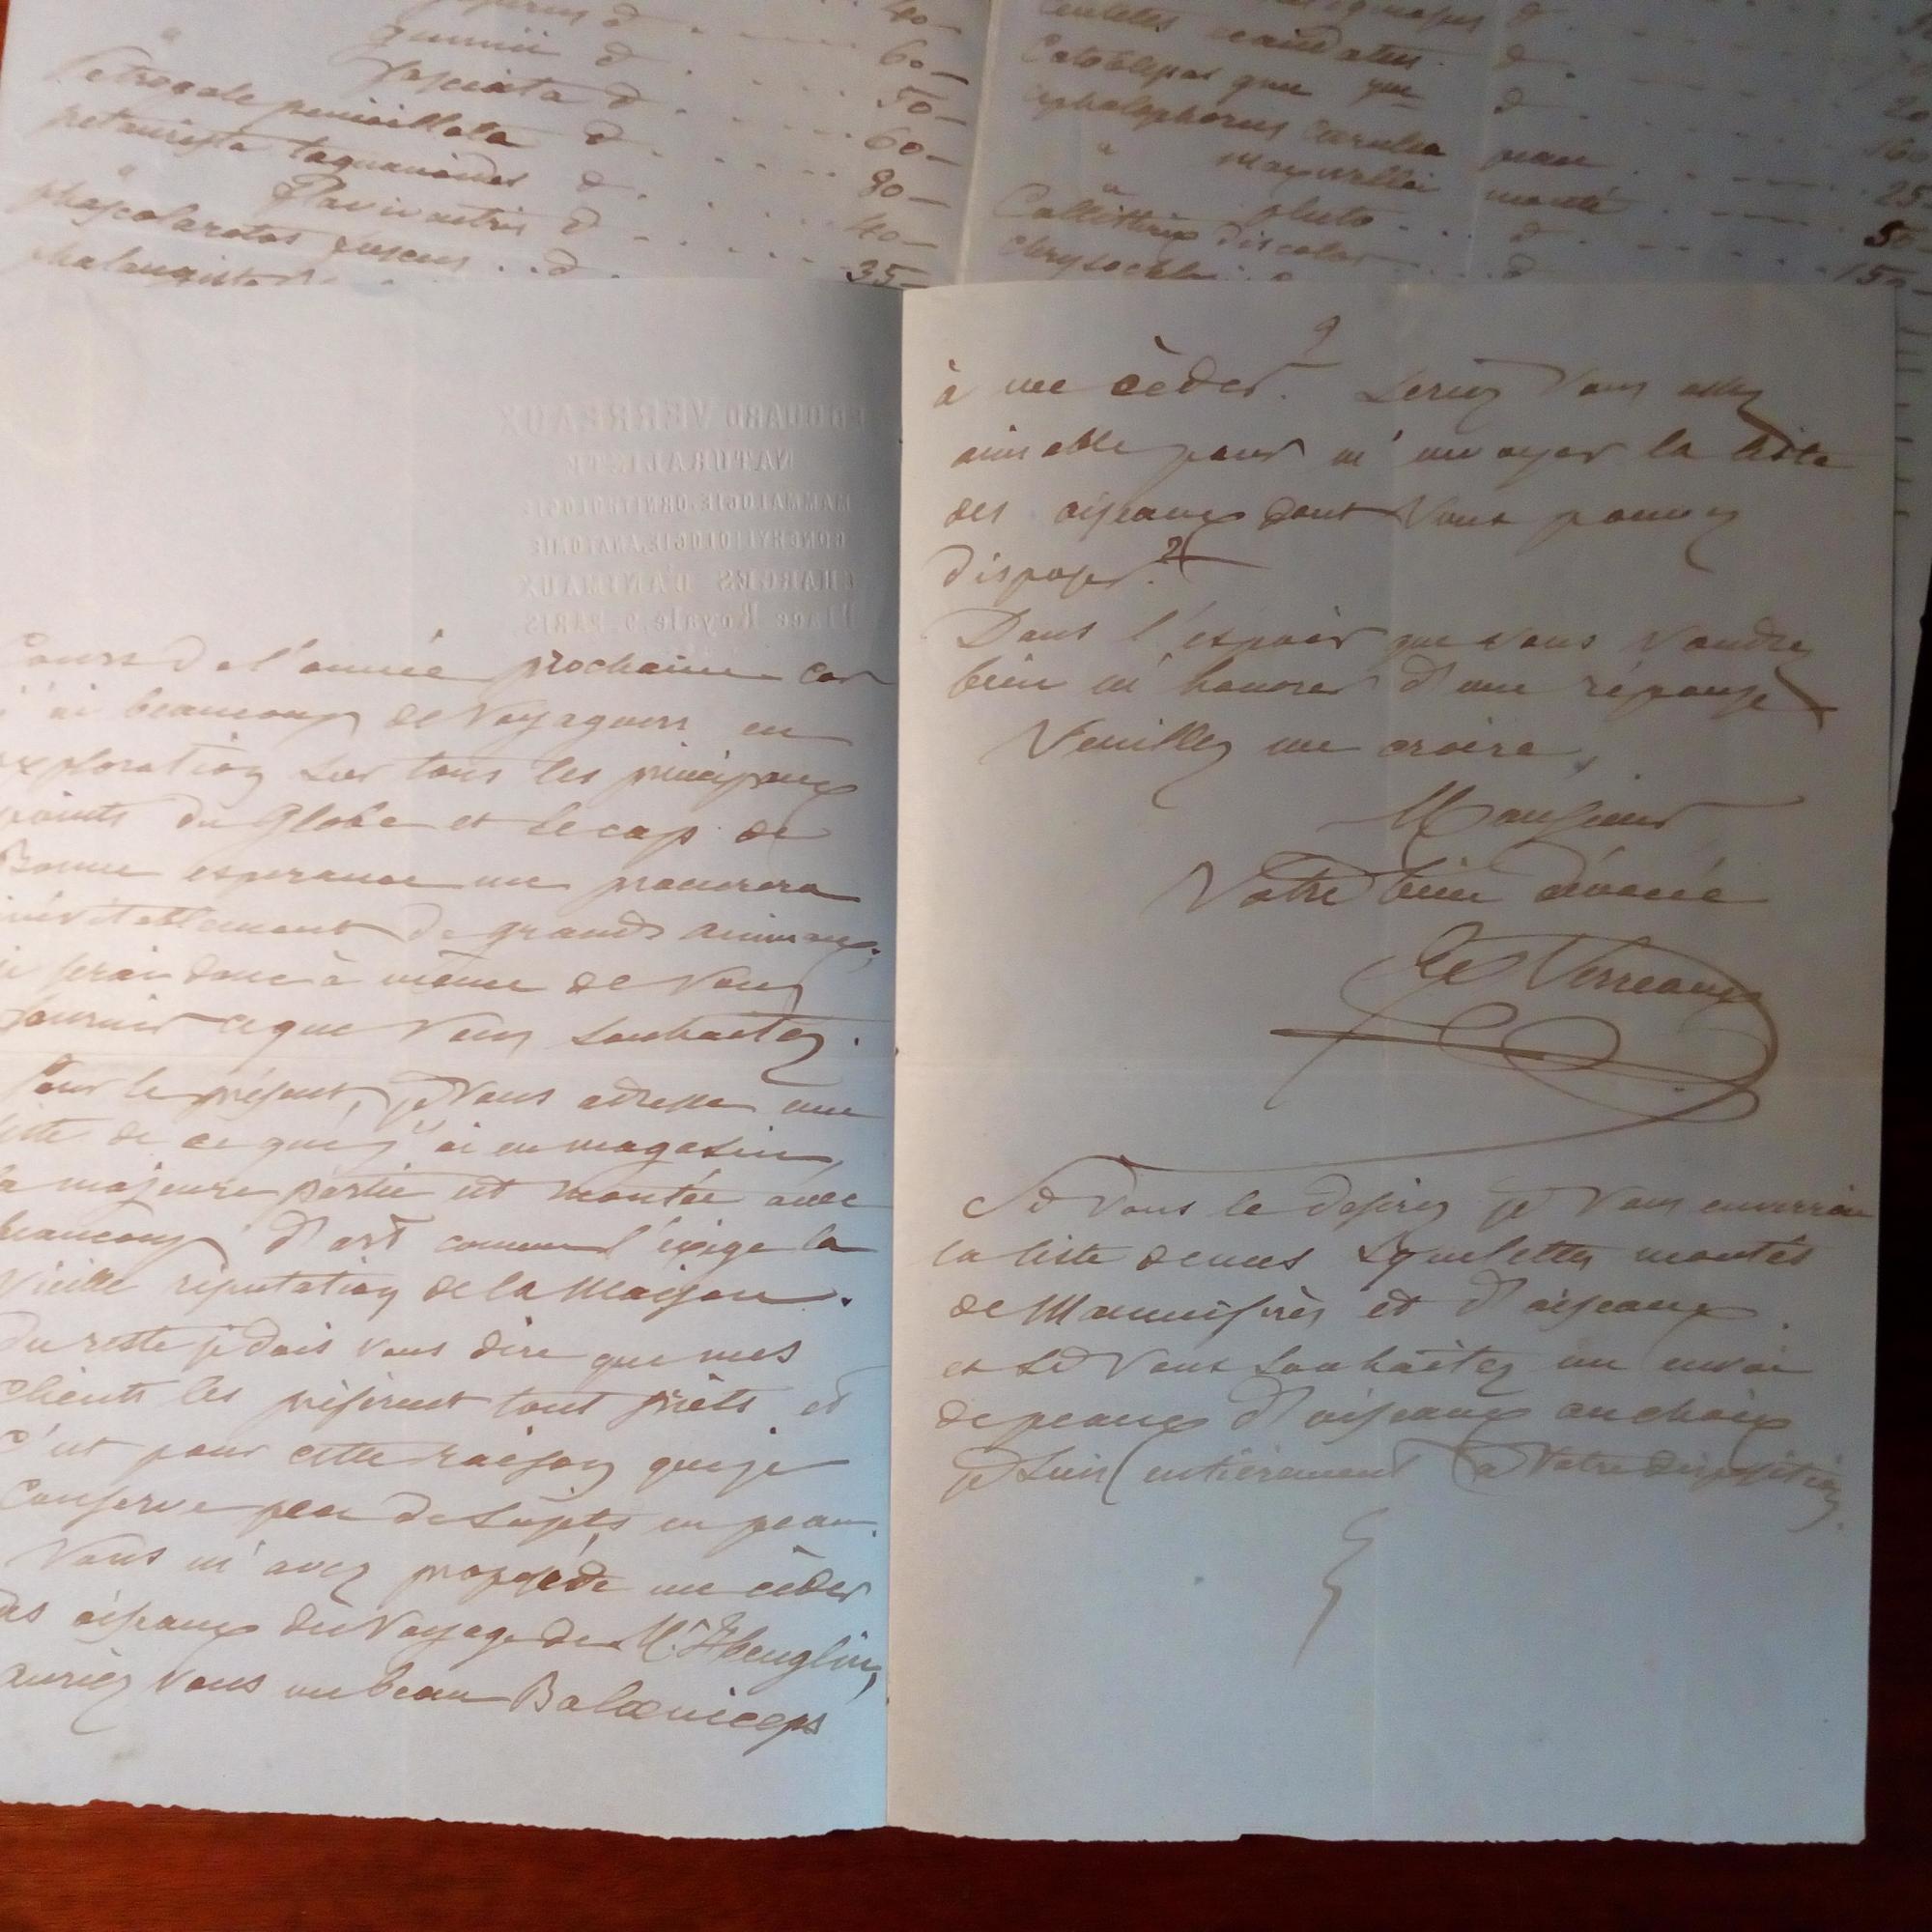 40-
gunnii d 60-
" fasciata d 50-
Petrogale penicillata d 60-
petaurista taguanoides d 90-
" flaviventris d 40-
phascolarctos fuscus d 35-
phalangista
Centetes ecaudatus d
Catoblepas gnu d 20
cephalophorus cærulea peau 160
" maxwellii monté 25
" pluto d 50
Callithrix discolor d 150-
chrysochl
EDOUARD VERREAUX
NATURALISTE
MAMMALOGIE.ORNITHOLOGIE
CONCHYLIOLOGIE.ANATOMIE
CHARGES D'ANIMAUX
Place Royale.9.PARIS
Cours de l'année prochaine car
j'ai beaucoup de Voyageurs en
exploration sur tous les principaux
points du Globe et le cap de
Bonne esperance me procurera
inévitablement de grands animaux,
je serai donc à même de Vous
fournir ce que Vous souhaitez.
Pour le présent, je Vous adresse une
liste de ce que j'ai en magasin,
la majeure partie est montée avec
beaucoup d'art comme l'éxige la
Vieille réputation de la Maison.
Du reste je dois vous dire que mes
clients les préfèrent tout prêts et
c'est pour cette raison que je
Conserve peu de sujets en peau.
Vous m'avez proposé de me cèder
des oiseaux du Voyage de Mr. Heuglin,
auriez vous un beau Balœniceps
à me cèder? Seriez Vous assez
aimable pour m'envoyer la liste
des oiseaux dont Vous pouvez
disposer?
Dans l'espoir que vous voudrez
bien m'honorer d'une réponse
Veuillez me croire,
Monsieur
Votre bien dévoué
Ed Verreaux
Si Vous le desirez je Vous enverrai
la liste de mes Squelettes montés
de Mammifères et d'oiseaux.
et si Vous souhaitez un envoi
de peaux d'oiseaux au choix
je suis entièrement à Votre disposition.